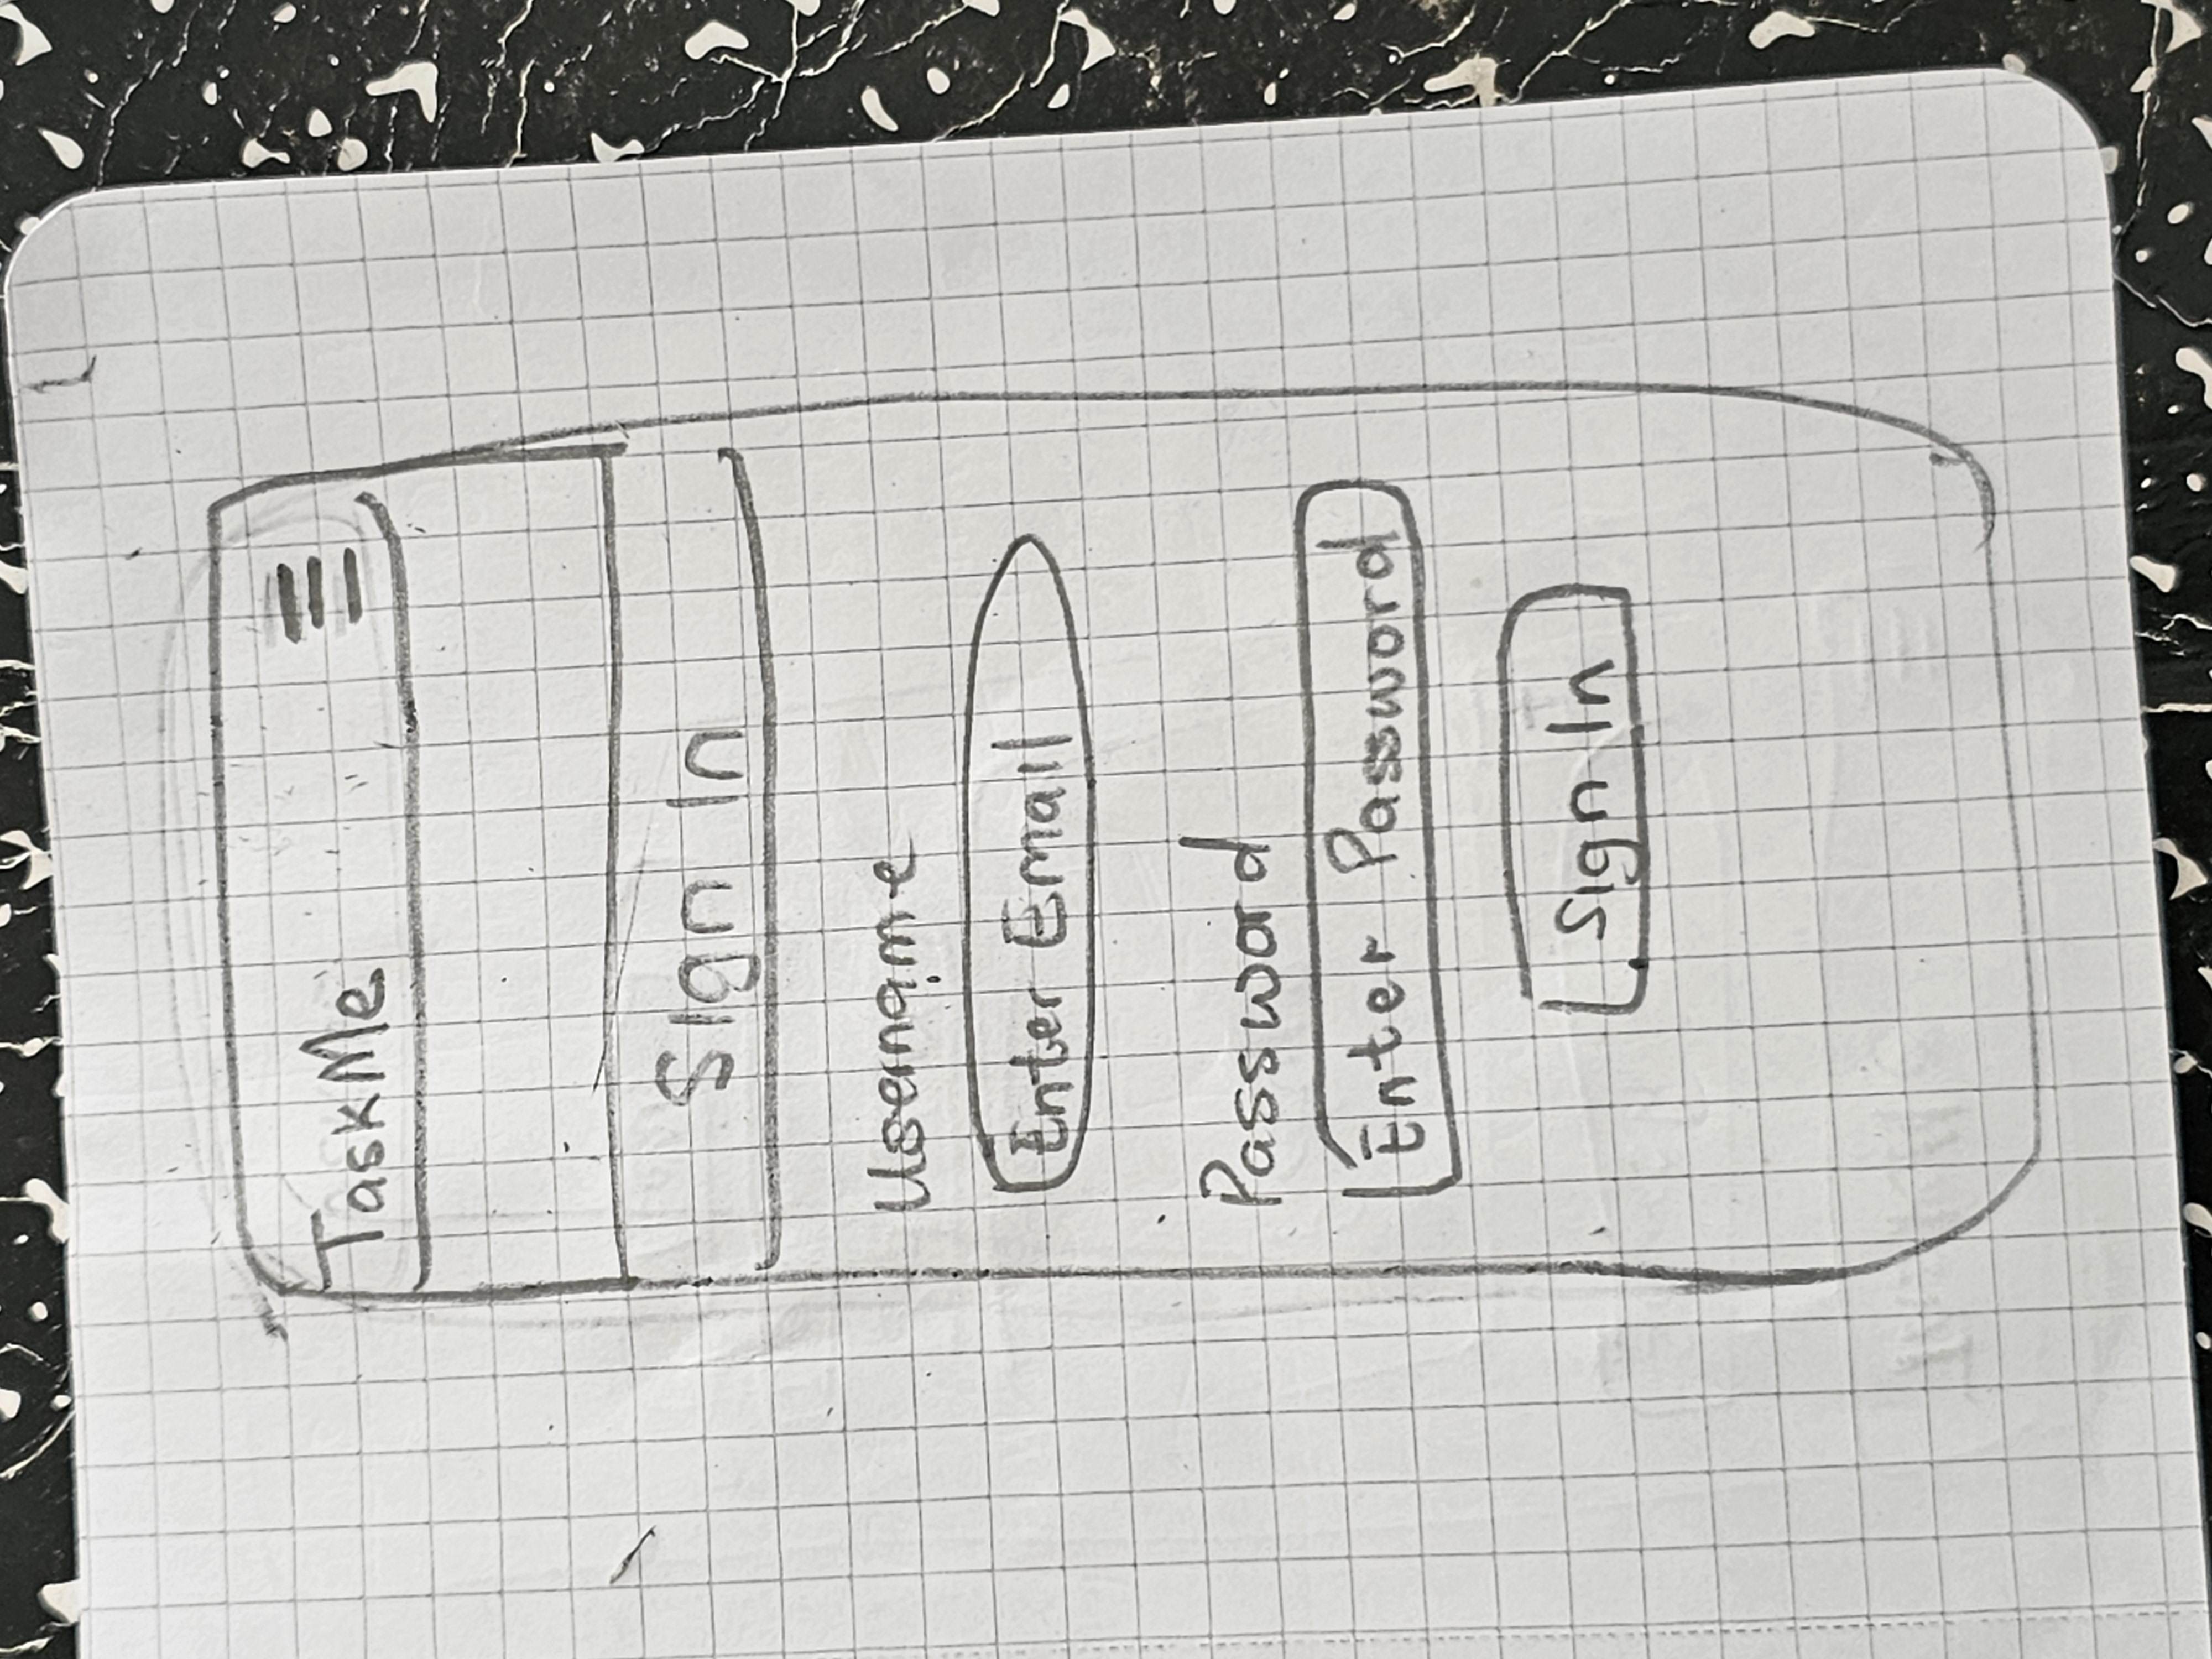 TaskMe
Sign In
Username
Enter Email
Password
Enter Password
Sign In